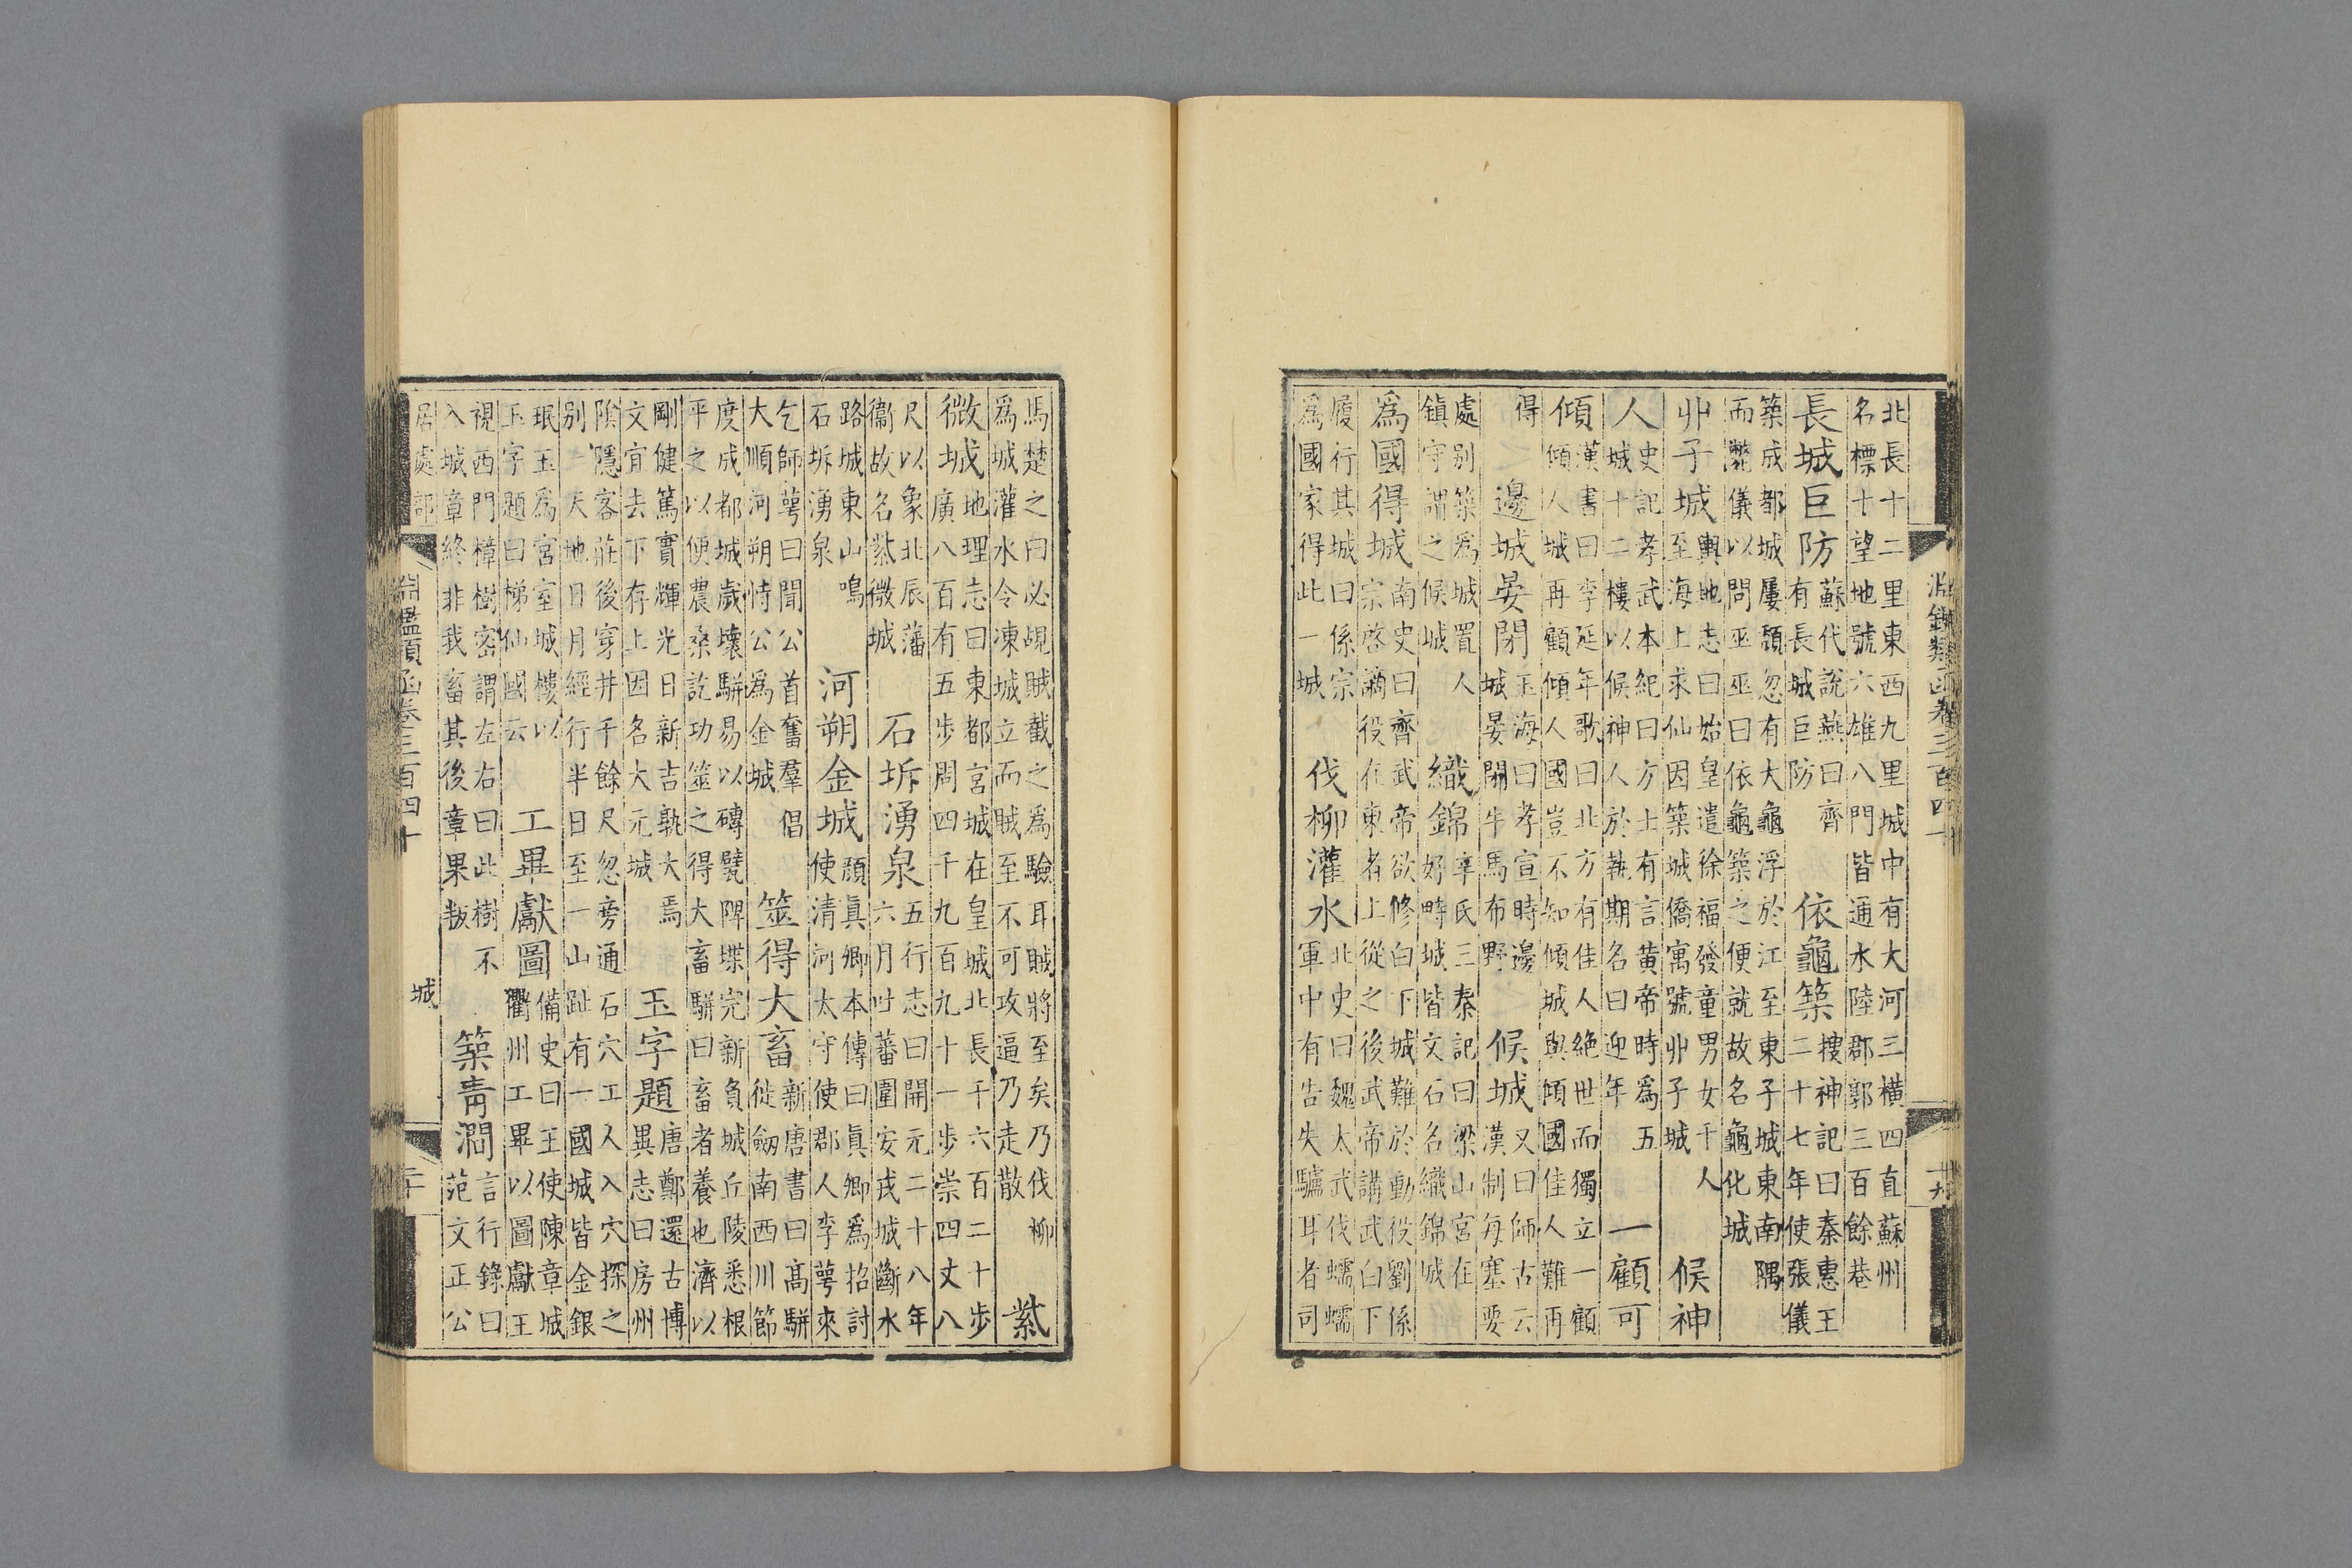 淵鑑類函卷三百四十
十九
北長十二里東西九里城中有大河三橫四直蘇州
名標十望地號六雄八門皆通水陸郡郭三百餘巷
長城巨防
蘇代說燕曰齊
有長城巨防
依龜築
搜神記曰秦惠王
二十七年使張儀
築成都城屢頹忽有大龜浮於江至東子城東南隅
而斃儀以問巫巫曰依龜築之便就故名龜化城
丱子城
輿地志曰始皇遣徐福發童男女千人
至海上求仙因築城僑寓號丱子城
候神
人
史記孝武本紀曰方士有言黃帝時爲五
城十二樓以候神人於執期名曰迎年
一顧可
傾
漢書曰李延年歌曰北方有佳人絶世而獨立一顧
傾人城再顧傾人國豈不知傾城與傾國佳人難再
得
邊城晏閉
玉海曰孝宣時邊
城晏閉牛馬布野
候城
又曰師古云
漢制每塞要
處别築爲城置人
鎮守謂之候城
織錦
辛氏三秦記曰梁山宮在
好畤城皆文石名織錦城
爲國得城
南史曰齊武帝欲修白下城難於動役劉係
宗啓謫役在東者上從之後武帝講武白下
履行其城曰係宗
爲國家得此一城
伐柳灌水
北史曰魏太武伐蠕蠕
軍中有告失驢耳者司
馬楚之曰必覘賊截之爲驗耳賊將至矣乃伐柳
爲城灌水令凍城立而賊至不可攻逼乃走散
紫
微城
地理志曰東都宮城在皇城北長千六百二十步
廣八百有五步周四千九百九十一步崇四丈八
尺以象北辰藩
衞故名紫微城
石坼湧泉
五行志曰開元二十八年
六月吐蕃圍安戎城斷水
路城東山鳴
石坼湧泉
河朔金城
顏眞卿本傳曰眞卿爲招討
使清河太守使郡人李萼來
乞師萼曰聞公首奮羣倡
大順河朔恃公爲金城
筮得大畜
新唐書曰高駢
徙劒南西川節
度成都城歲壞駢易以磚甓陴堞完新負城丘陵悉根
平之以便農桑訖功筮之得大畜駢曰畜者養也濟以
剛健篤實輝光日新吉孰大焉
文宜去下存上因名大元城
玉字題
唐鄭還古博
異志曰房州
陰隱客莊後穿井千餘尺忽旁通石穴工人入穴探之
别一天地日月經行半日至一山趾有一國城皆金銀
珉玉爲宮室城樓以
玉字題曰梯仙國云
工畢獻圖
備史曰王使陳章城
衢州工畢以圖獻王
視西門樟樹密謂左右曰此樹不
入城章終非我畜其後章果叛
築靑澗
言行錄曰
范文正公
居處部
淵鑑類函卷三百四十
城
二十